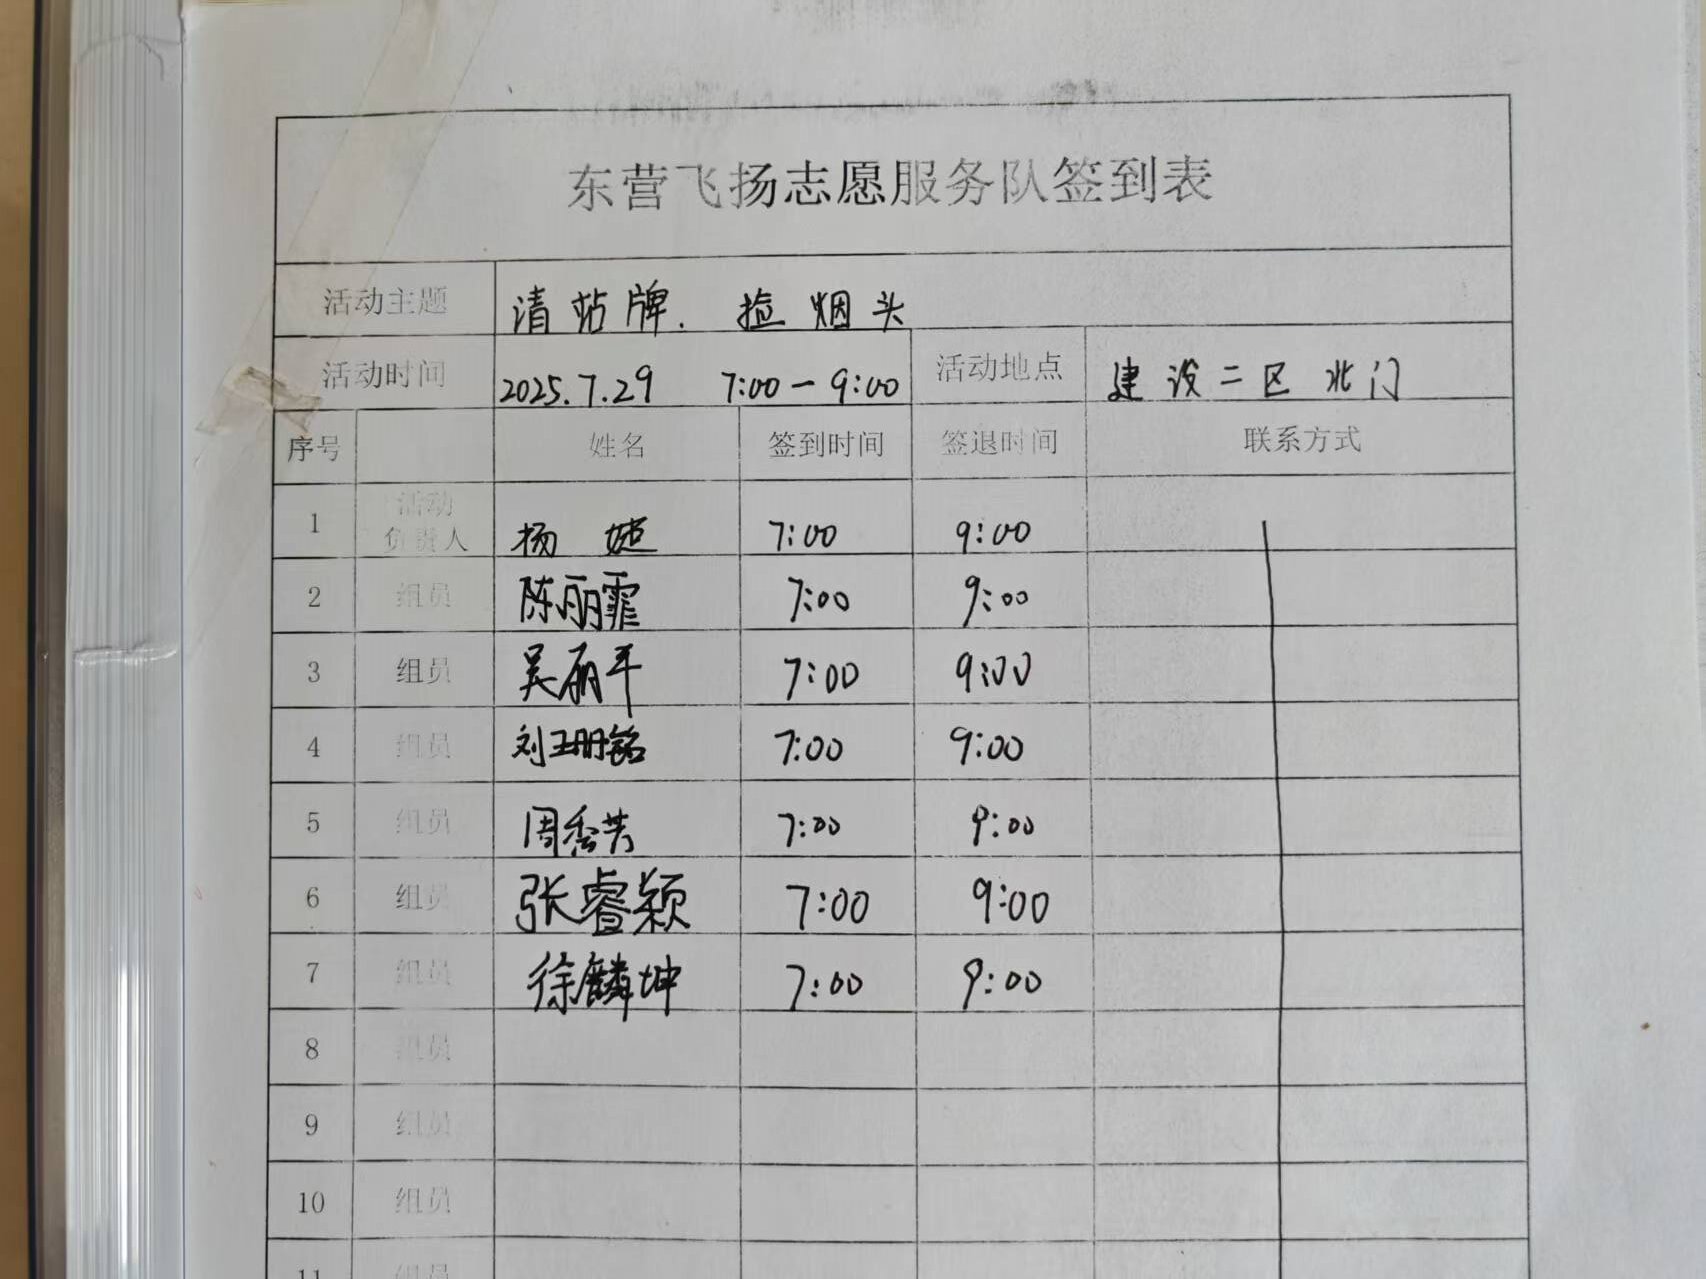 东营飞扬志愿服务队签到表
活动主题 清站牌. 捡烟头
活动时间 2025.7.29 7:00-9:00 活动地点 建设二区北门
序号 姓名 签到时间 签退时间 联系方式
1 活动负责人 杨 婕 7:00 9:00
2 组员 陈丽霏 7:00 9:00
3 组员 吴丽平 7:00 9:00
4 组员 刘珊铭 7:00 9:00
5 组员 周秀芳 7:00 9:00
6 组员 张睿颖 7:00 9:00
7 组员 徐麟坤 7:00 9:00
8 组员
9 组员
10 组员
11 组员